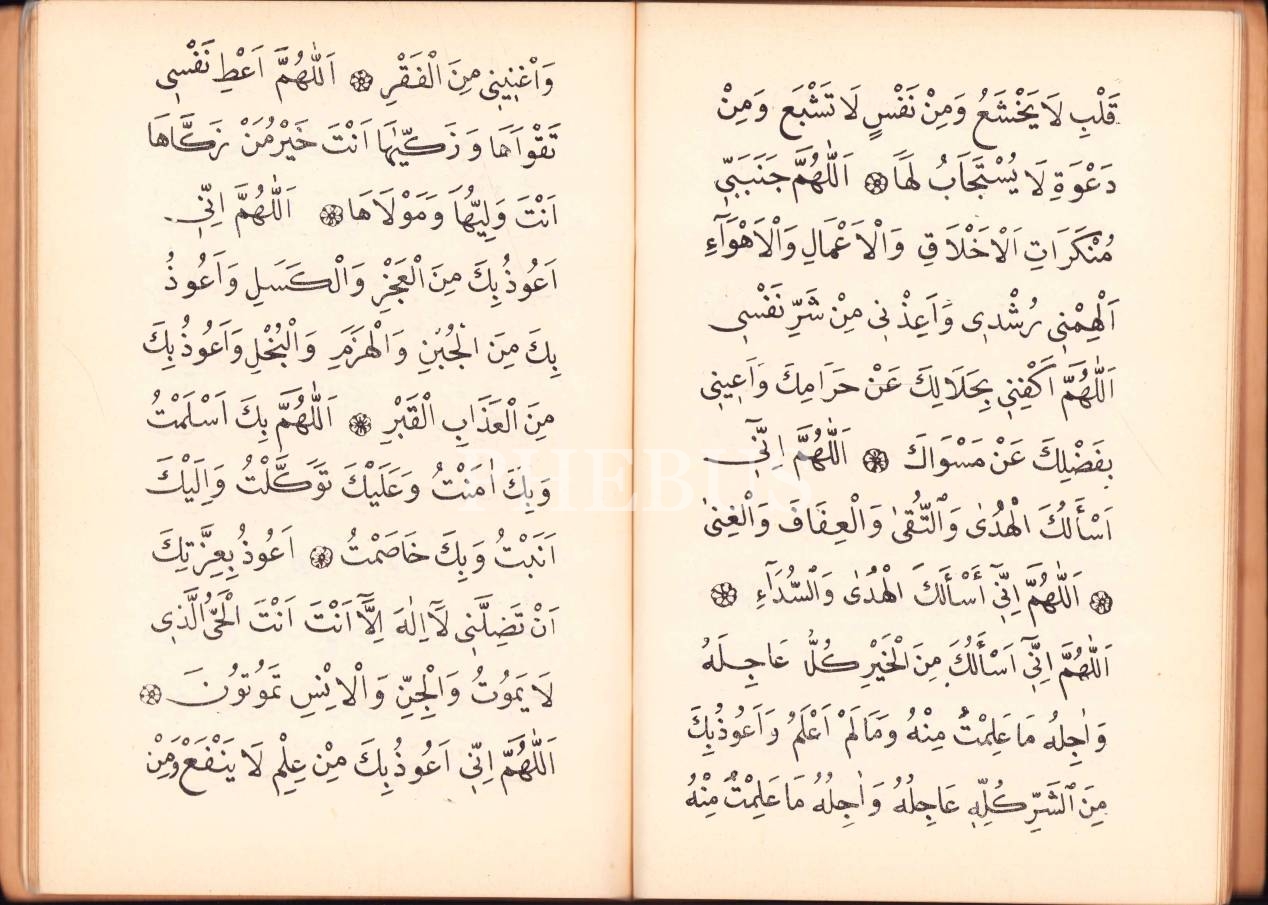 وَاَغْنِبْنِى مِنَ الْفَقْرِ ۞ اَللّٰهُمَّ اَعْطِ نَفْسِى
تَقْوَاهَا وَ زَكِّيهَا اَنْتَ خَيْرُ مَنْ زَكَّاهَا
اَنْتَ وَلِيُّهَا وَ مَوْلَاهَا ۞ اَللّٰهُمَّ اِنِّى
اَعُوذُ بِكَ مِنَ الْعَجْزِ وَالْكَسَلِ وَ اَعُوذُ
بِكَ مِنَ الْجُبْنِ وَالْهَزَمِ وَالْبُخْلِ وَاَعُوذُ بِكَ
مِنَ الْعَذَابِ الْقَبْرِ ۞ اَللّٰهُمَّ بِكَ اَسْلَمْتُ
وَ بِكَ اٰمَنْتُ وَ عَلَيْكَ تَوَكَّلْتُ وَاِلَيْكَ
اَنَبْتُ وَ بِكَ خَاصَمْتُ ۞ اَعُوذُ بِعِزَّتِكَ
اَنْ تَضِلَّنِى لَآ اِلٰهَ اِلَّآ اَنْتَ اَنْتَ الْحَىُّ الَّذِى
لَا يَمُوتُ وَالْجِنِّ وَالْاِنْسِ تَمُوتُونَ ۞
اَللّٰهُمَّ اِنِّى اَعُوذُ بِكَ مِنْ عِلْمٍ لَا يَنْفَعْ وَمِنْ
قَلْبِ لَا يَخْشَعُ وَمِنْ نَفْسٍ لَا تَشْبَع وَمِنْ
دَعْوَةِ لَا يُسْتَجَابُ لَهَا ۞ اَللّٰهُمَّ جَنَبَبِّى
مُنْكَرَاتِ اَلْاَخْلَاقِ وَالْاَعْمَالِ وَالْاَهْوَآءِ
اَلْهِمْنِى رُشْدِى وَاَعِذْنِى مِنْ شَرِّ نَفْسِى
اَللّٰهُمَّ اَكْفِنِى بِحَلَالِكَ عَنْ حَرَامِكَ وَاَعِينِى
بِفَضْلِكَ عَنْ مَسْوَاكَ ۞ اَللّٰهُمَّ اِنِّى
اَسْأَلُكَ الْهُدٰى وَالتُّقٰى وَالْعِفَافَ وَالْغِنٰى
۞ اَللّٰهُمَّ اِنِّى أَسْأَلَكَ الْهُدٰى وَالسُّدَآءِ ۞
اَللّٰهُمَّ اِنِّى اَسْأَلُكَ مِنَ الْخَيْرِ كُلُّ عَاجِلَهُ
وَاٰجِلِهُ مَا عَلِمْتُ مِنْهُ وَمَا لَمْ اَعْلَمُ وَاَعُوذُ بِكَ
مِنَ الشَرِّ كُلِّهِ عَاجِلُهُ وَاٰجِلُهُ مَا عَلِمْتُ مِنْهُ
PHEBUS